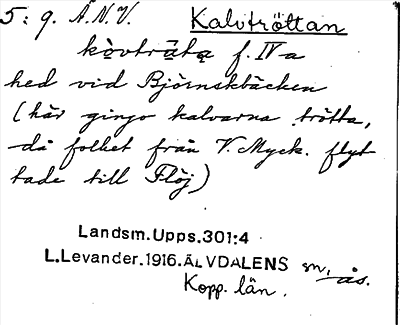 5:9. Ä.N.V. Kalvtröttan
kòvträ̀ta f. IV a
hed vid Björnskbäcken
(här gingo kalvarna trötta,
då folket från V. Myck. flyt-
tade till Flöj)
Landsm.Upps.301:4
L.Levander.1916.ÄLVDALENS sn, ås.
Kopp. län.